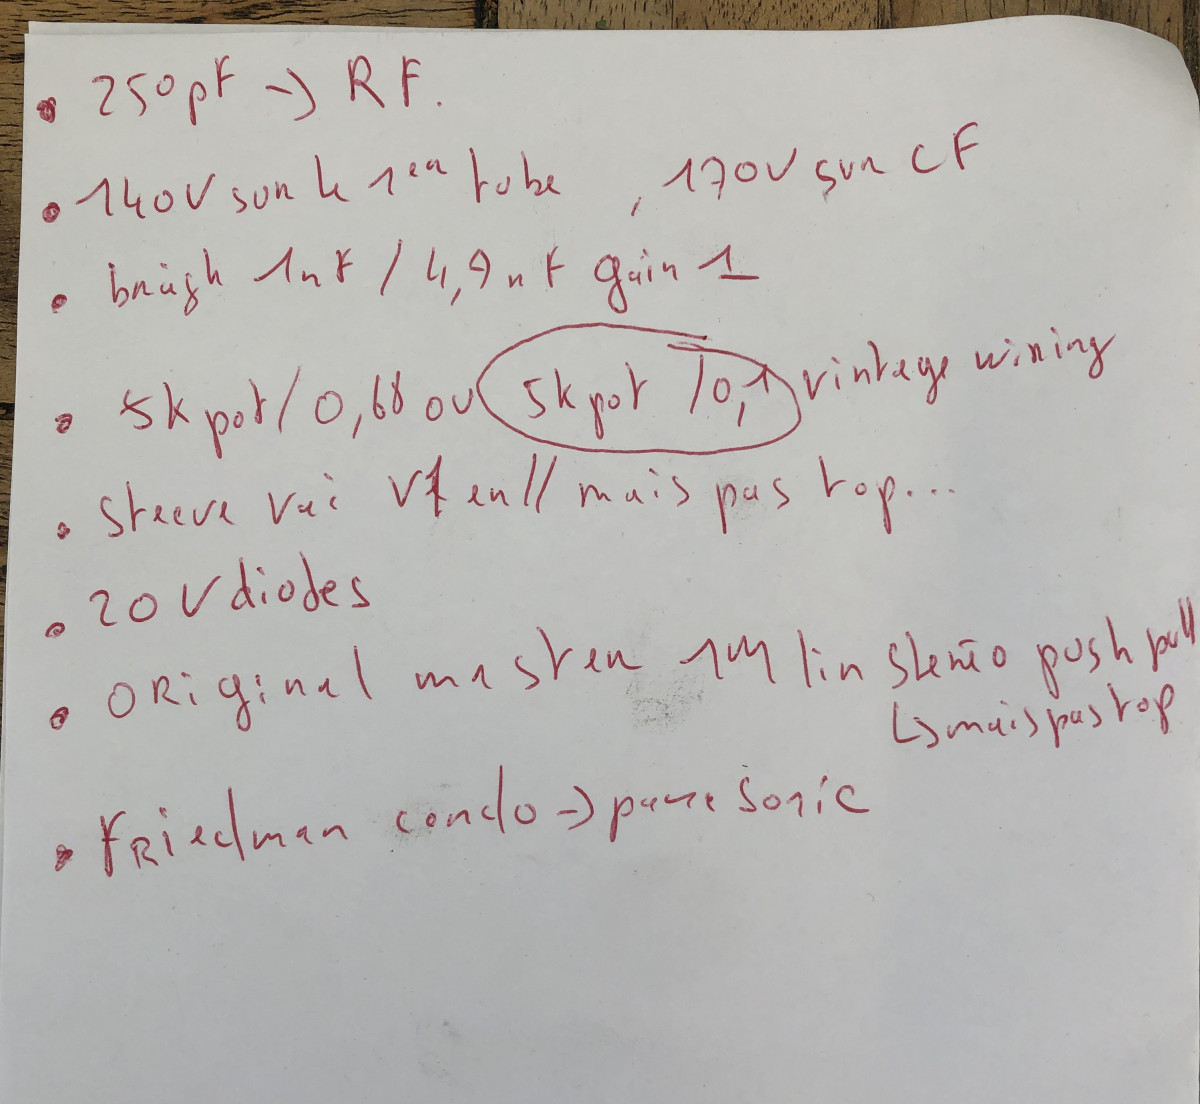 • 250pF -> RF.
• 140V sur le 1er tube , 170V sur CF
• brigh 1nF / 4,9nF gain 1
• 5k pot / 0,68 ou 5k pot / 0,1 vintage wiring
• Steeve Vai V1 en // mais pas top...
• 20V diodes
• ORiginal master 1M lin stéréo push pull
↳ mais pas top
• FRiedman condo -> panasonic